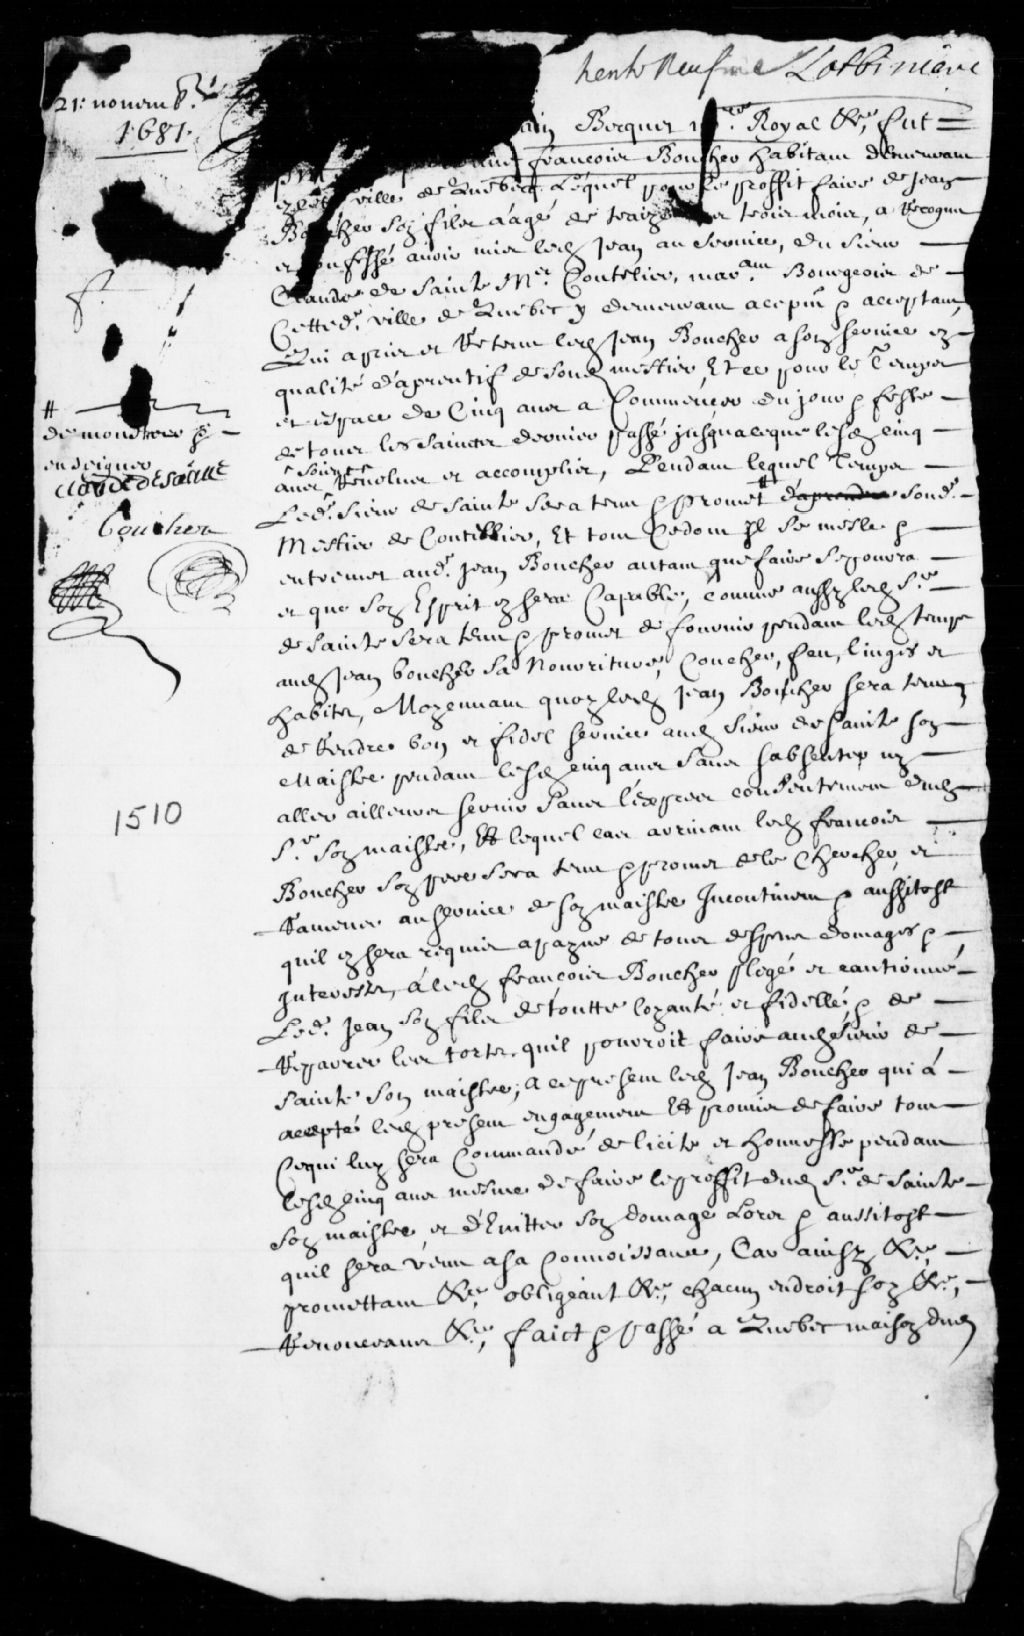 trente neufme Lotbiniere
21: novemb.re
1681.
ain Becquet n.re Royal &c, fut
francois Boucher habitant demeurant
ville de Quebecq Lequel pour le proffit faire de Jean
Boucher son filz aagé de traize trois mois, a Recognu
et confessé avoir mis led. Jean au service, du sieur
Claude de Sainte M.er Coutelier, mar.ant Bourgeois de
Cette d. ville de Quebec y demeurant a ce p.nt & acceptant,
Qui a pris et Retenu led. Jean Boucher a son service en
qualité d'aprentif de sond. mestier, Et ce pour le Temps
et espace de Cinq ans a Commencer du jour & feste
de tous les Saincts dernier passé jusqua ceque lesd. cinq
ans soient Revolus et accomplis, Pendant lequel Temps
Led. Sieur de Sainte sera tenu & promet # d'aprendre sond.
Mestier de Coutellier, Et tout Cedont Il se mesle &
entremet aud. Jean Boucher autant que faire se pourra
et que son Esprit en sera Capable, comme aussy led. S.r
de Sainte sera tenu & promet de fournir pendant led. temps
aud. Jean boucher sa Nouriture, Coucher, feu, linges et
habits, Moyennant quoy led. Jean Boucher sera tenu
de Rendre bon et fidel service aud. Sieur de Sainte son
Maistre pendant lesd. cinq ans sans s'absenter ny
aller ailleurs servir sans l'expres consentement dud.
S.r son maistre, Et lequel cas avenant led. francois
Boucher son pere sera tenu & promet de le Chercher, et
Ramener au service de son maistre Incontinent & aussitost
quil en sera requis a payne de tous despens domages &
Interestz, a led. francois Boucher plegé et cautionné
Led. Jean son filz de toutte loyauté et fidellé, & de
Reparrer les torts quil pourroit faire aud. Sieur de
Sainte son maistre, a ce present led. Jean Boucher qui á
accepté led. present engagement Et promis de faire tout
Cequi luy sera Commandé de licite et honneste pendant
lesd. cinq ans mesme de faire le proffit dud. S.r de Sainte
son maistre et d'Evitter son domage Lors & aussitost
quil sera venu a sa Connoissance, Car ainsy &c,
promettant &c, obligeant &c, chacun endroit soy &c,
Renonceant &c, faict & passé a Quebec maison dud.
#
demonstrer &
enseigner
CLAUDE DE SAINTE
boucher
1510